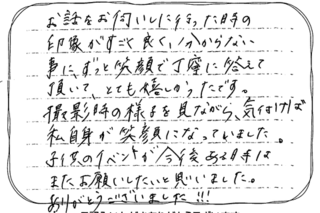 お話をお伺いしに行った時の
印象がすごく良く、分からない
事に、ずっと笑顔で丁寧に答えて
頂いて、とても嬉しかったです。
撮影時の様子を見ながら、気付けば
私自身が笑顔になっていました。
子供のイベントが今後ある時は
またお願いしたいと思いました。
ありがとうございました!!!